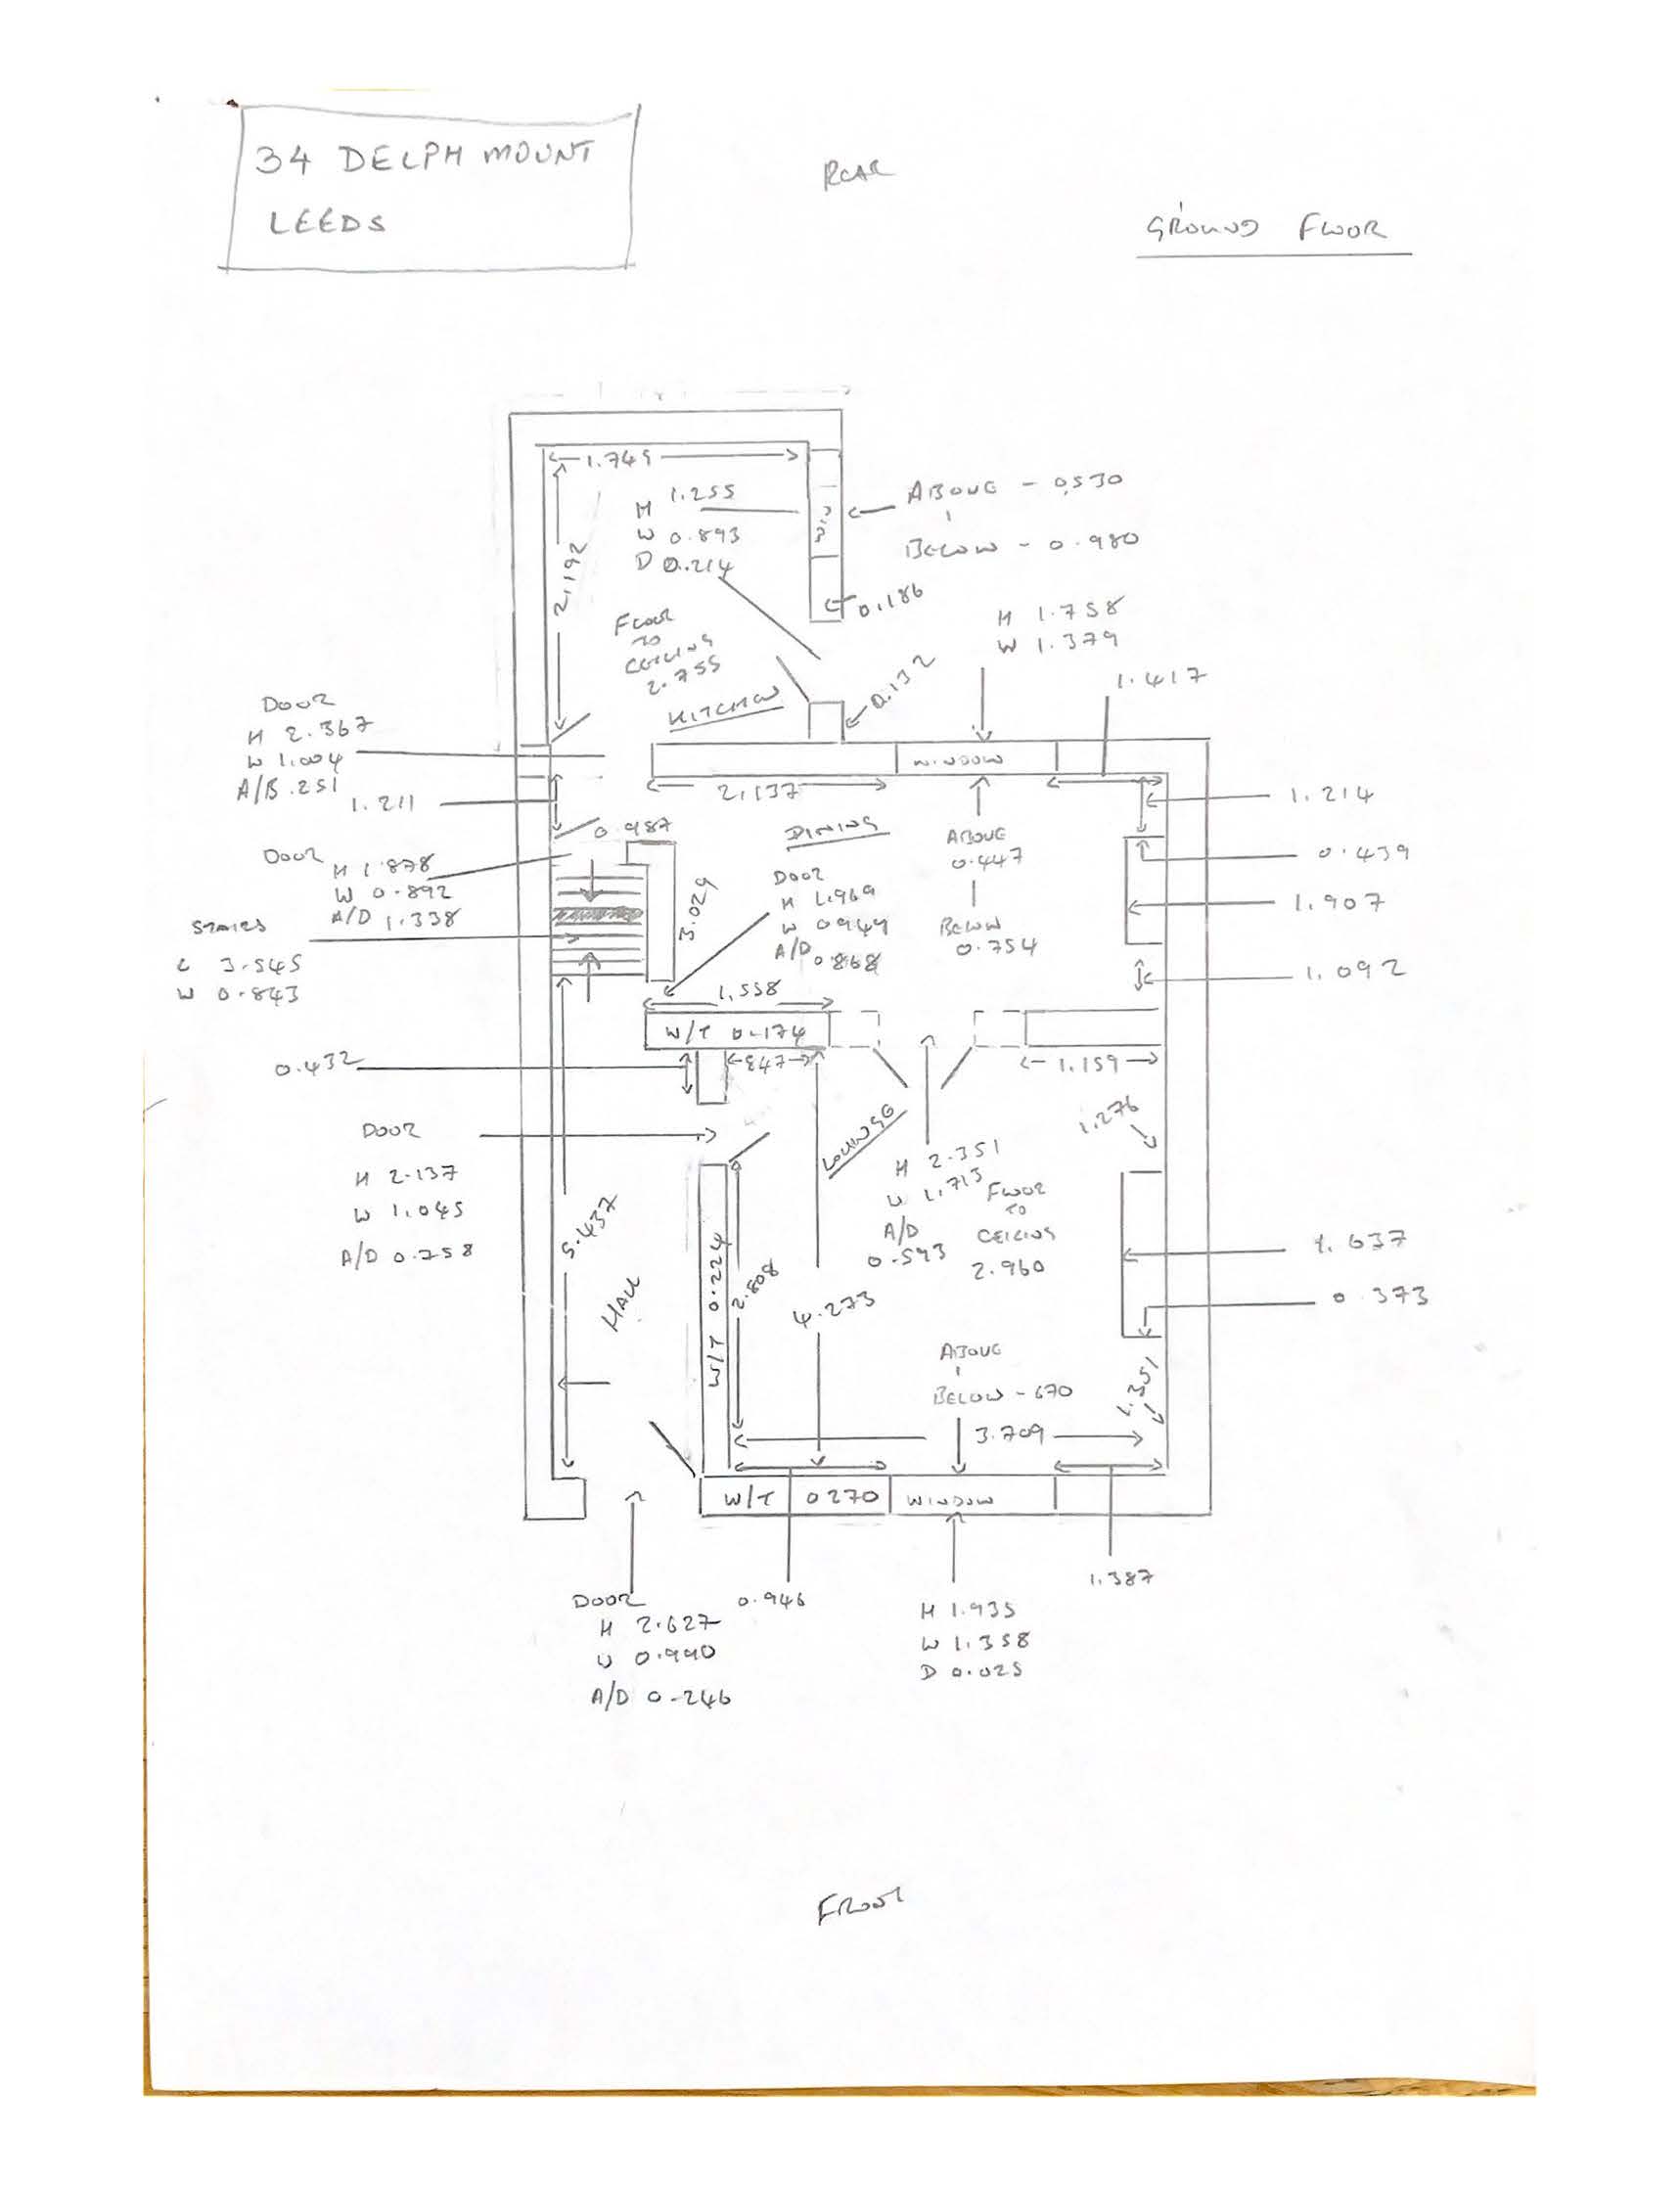 34 DELPH MOUNT
LEEDS
REAR
GROUND FLOOR
1.749
H 1.255
W 0.893
D 0.214
WIN
ABOVE - 0.530
BELOW - 0.980
0.186
2.192
FLOOR
TO
CEILING
2.755
KITCHEN
0.132
H 1.758
W 1.379
1.417
DOOR
H 2.367
W 1.004
A/B .251
1.211
2.137
WINDOW
1.214
0.987
DINING
ABOVE
0.447
BELOW
0.754
0.439
DOOR
H 1.878
W 0.892
A/D 1.338
3.029
DOOR
H 1.969
W 0949
A/D 0.868
1.907
STAIRS
L 3.545
W 0.843
1.092
1.558
W/T 0.174
0.432
847
1.159
1.276
DOOR
H 2.137
W 1.045
A/D 0.758
LOUNGE
H 2.351
W 1.713
A/D
0.593
FLOOR
TO
CEILING
2.960
5.437
W/T 0.224
2.808
4.273
1.637
0.373
HALL
ABOVE
BELOW - 670
1.351
3.709
W/T 0270
WINDOW
DOOR
H 2.627
W 0.990
A/D 0.246
0.946
H 1.935
W 1.358
D 0.025
1.387
FRONT